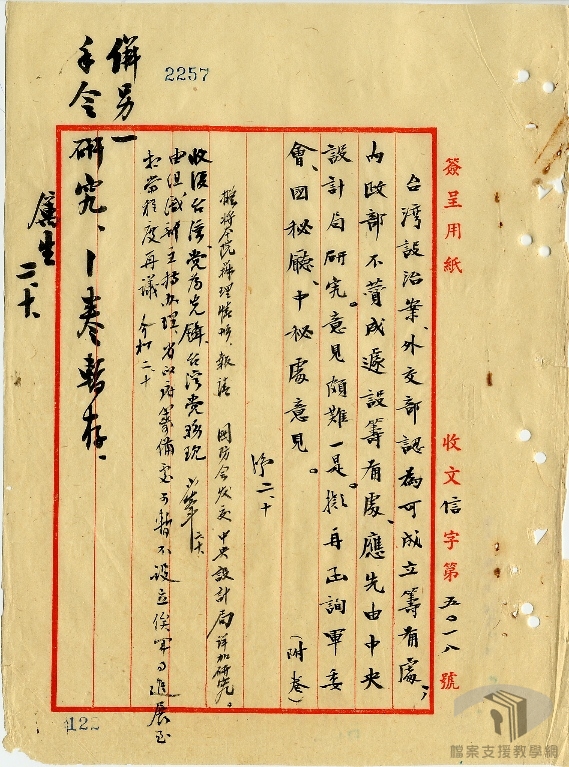 簽呈用紙
收文信字第五〇一八號
台灣設治案、外交部認為可成立籌備處，
內政部不贊成遽設籌備處、應先由中央
設計局研究。意見頗難一是。擬再函詢軍委
會、國秘廳、中秘處意見。
（附卷）
二、十
擬將本院辦理情形、報請 國防會發交中央設計局詳加研究。
收復台灣黨為先鋒、台灣黨務現
由組織部主持辦理、省政府籌備處可暫不設立俟軍事進展至
相當程度再議
二、十
併另一
手令研究、卜卷暫存、
厲生
二、十、
2257
122
檔案支援教學網